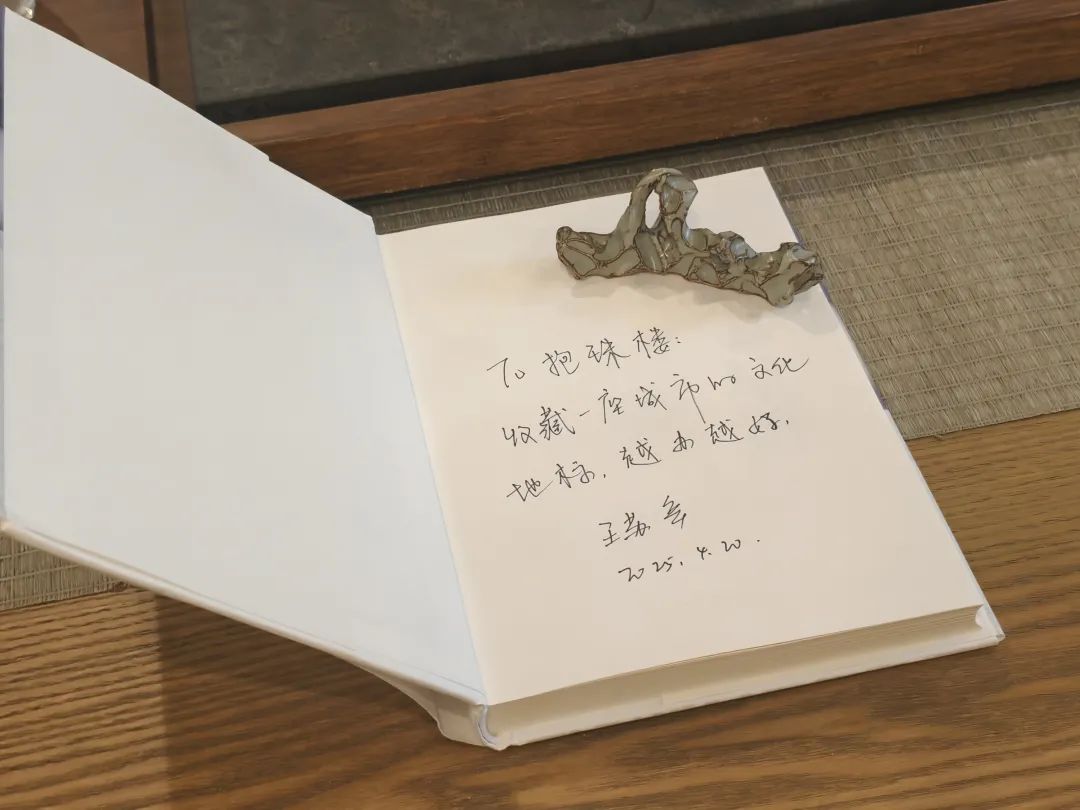 To 抱珠楼：
收藏一座城市的文化
地标，越办越好．
王苏辛
2025.4.20.